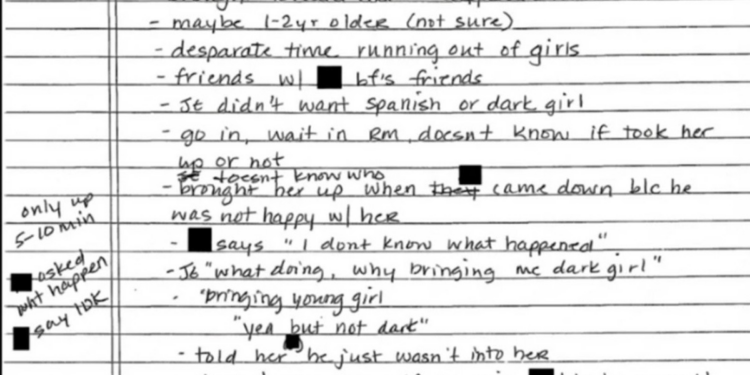 - maybe 1-2yr older (not sure)
- desparate time running out of girls
- friends w/ bf's friends
- JE didn't want Spanish or dark girl
- go in, wait in Rm, doesn't know if took her
up or not
doesn't know who
- brought her up when they came down b/c he
was not happy w/ her
only up
5-10 min
- says "I dont know what happened"
asked
wht happen
say IDK
- JE "what doing, why bringing me dark girl"
- "bringing young girl
"yea but not dark"
- told her he just wasn't into her